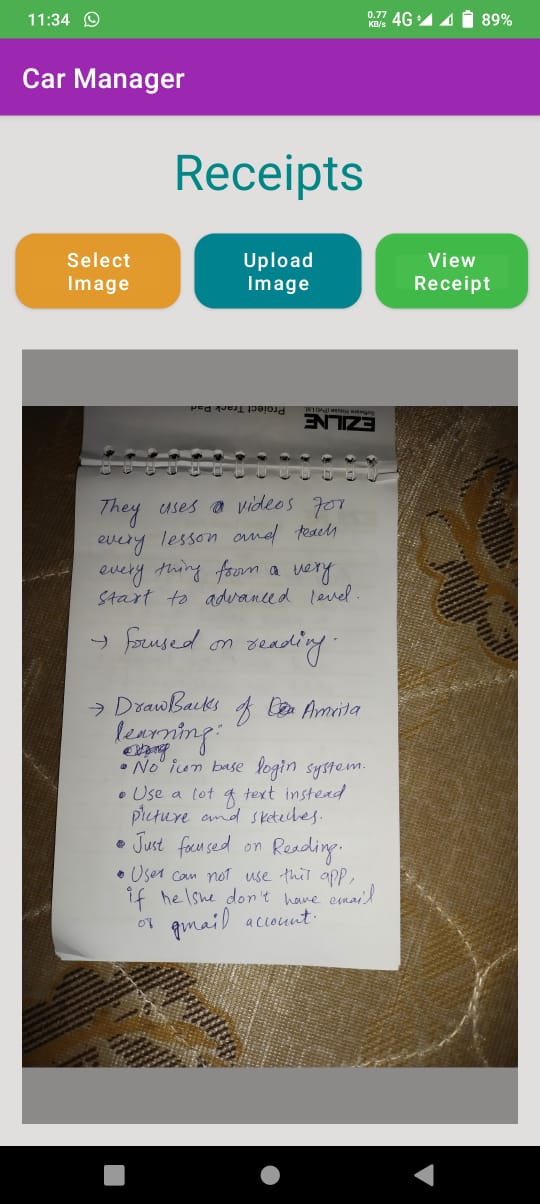 11:34
0.77 KB/s 4G 89%
Car Manager
Receipts
Select Image
Upload Image
View Receipt
Project Track Pad
Software House (Pvt) Ltd.
EZILNE
They uses a videos for
every lesson and teach
every thing from a very
start to advanced level.
→ focused on reading.
→ DrawBacks of Amrita
learning:
• No icon base login system.
• Use a lot of text instead
picture and sketches.
• Just focused on Reading.
• User can not use this app,
if he/she don't have email
or gmail account.